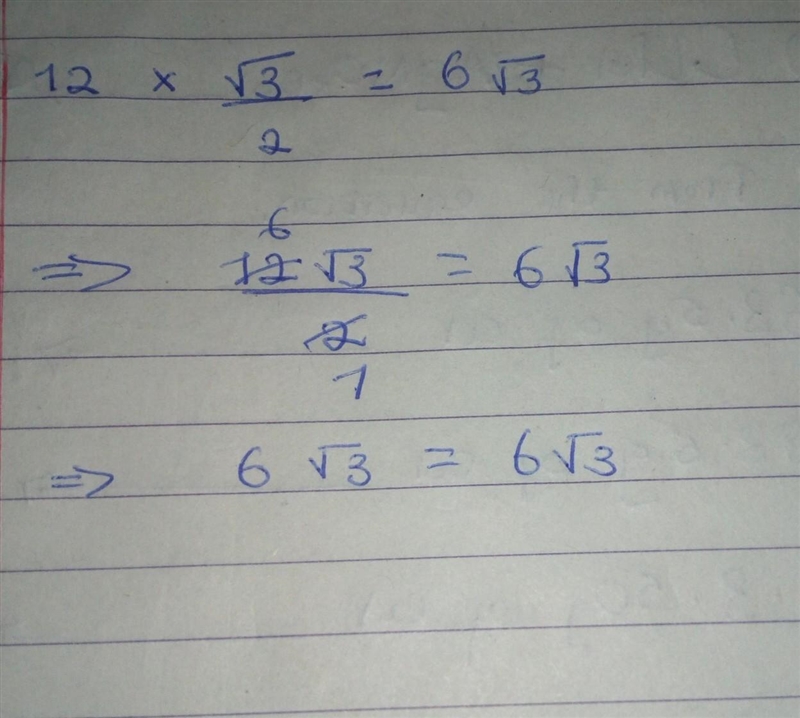 12 × √3/2 = 6√3
⇒ 12√3/2 = 6√3
⇒ 6√3 = 6√3